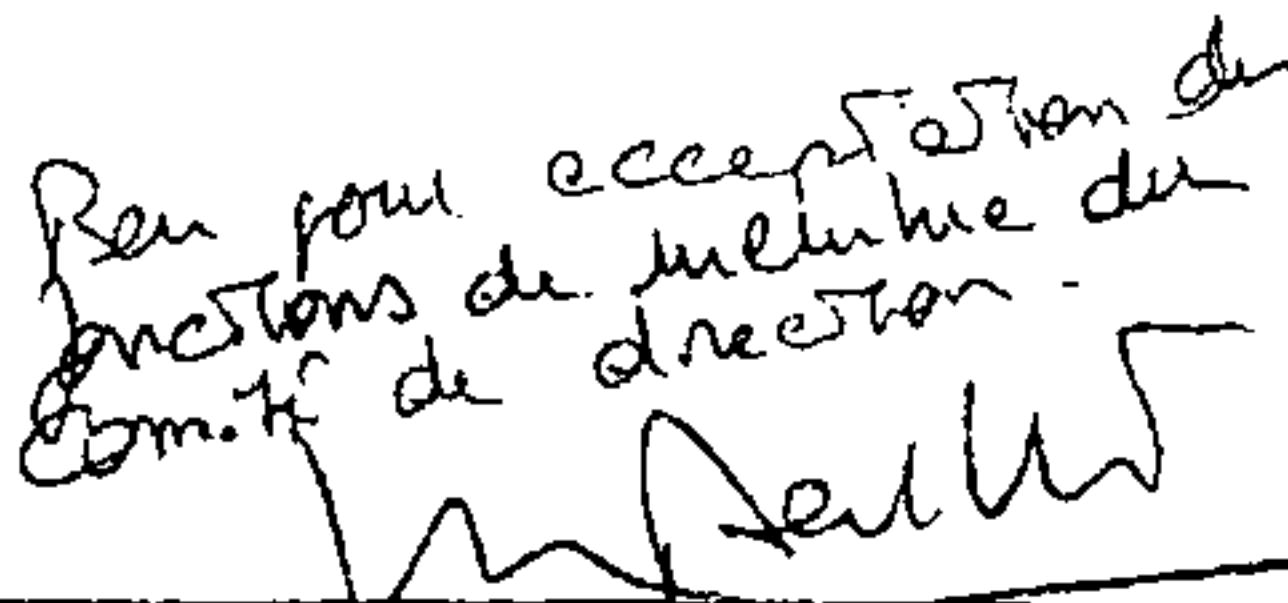 Bon pour acceptation de
fonctions de membre du
comité de direction.